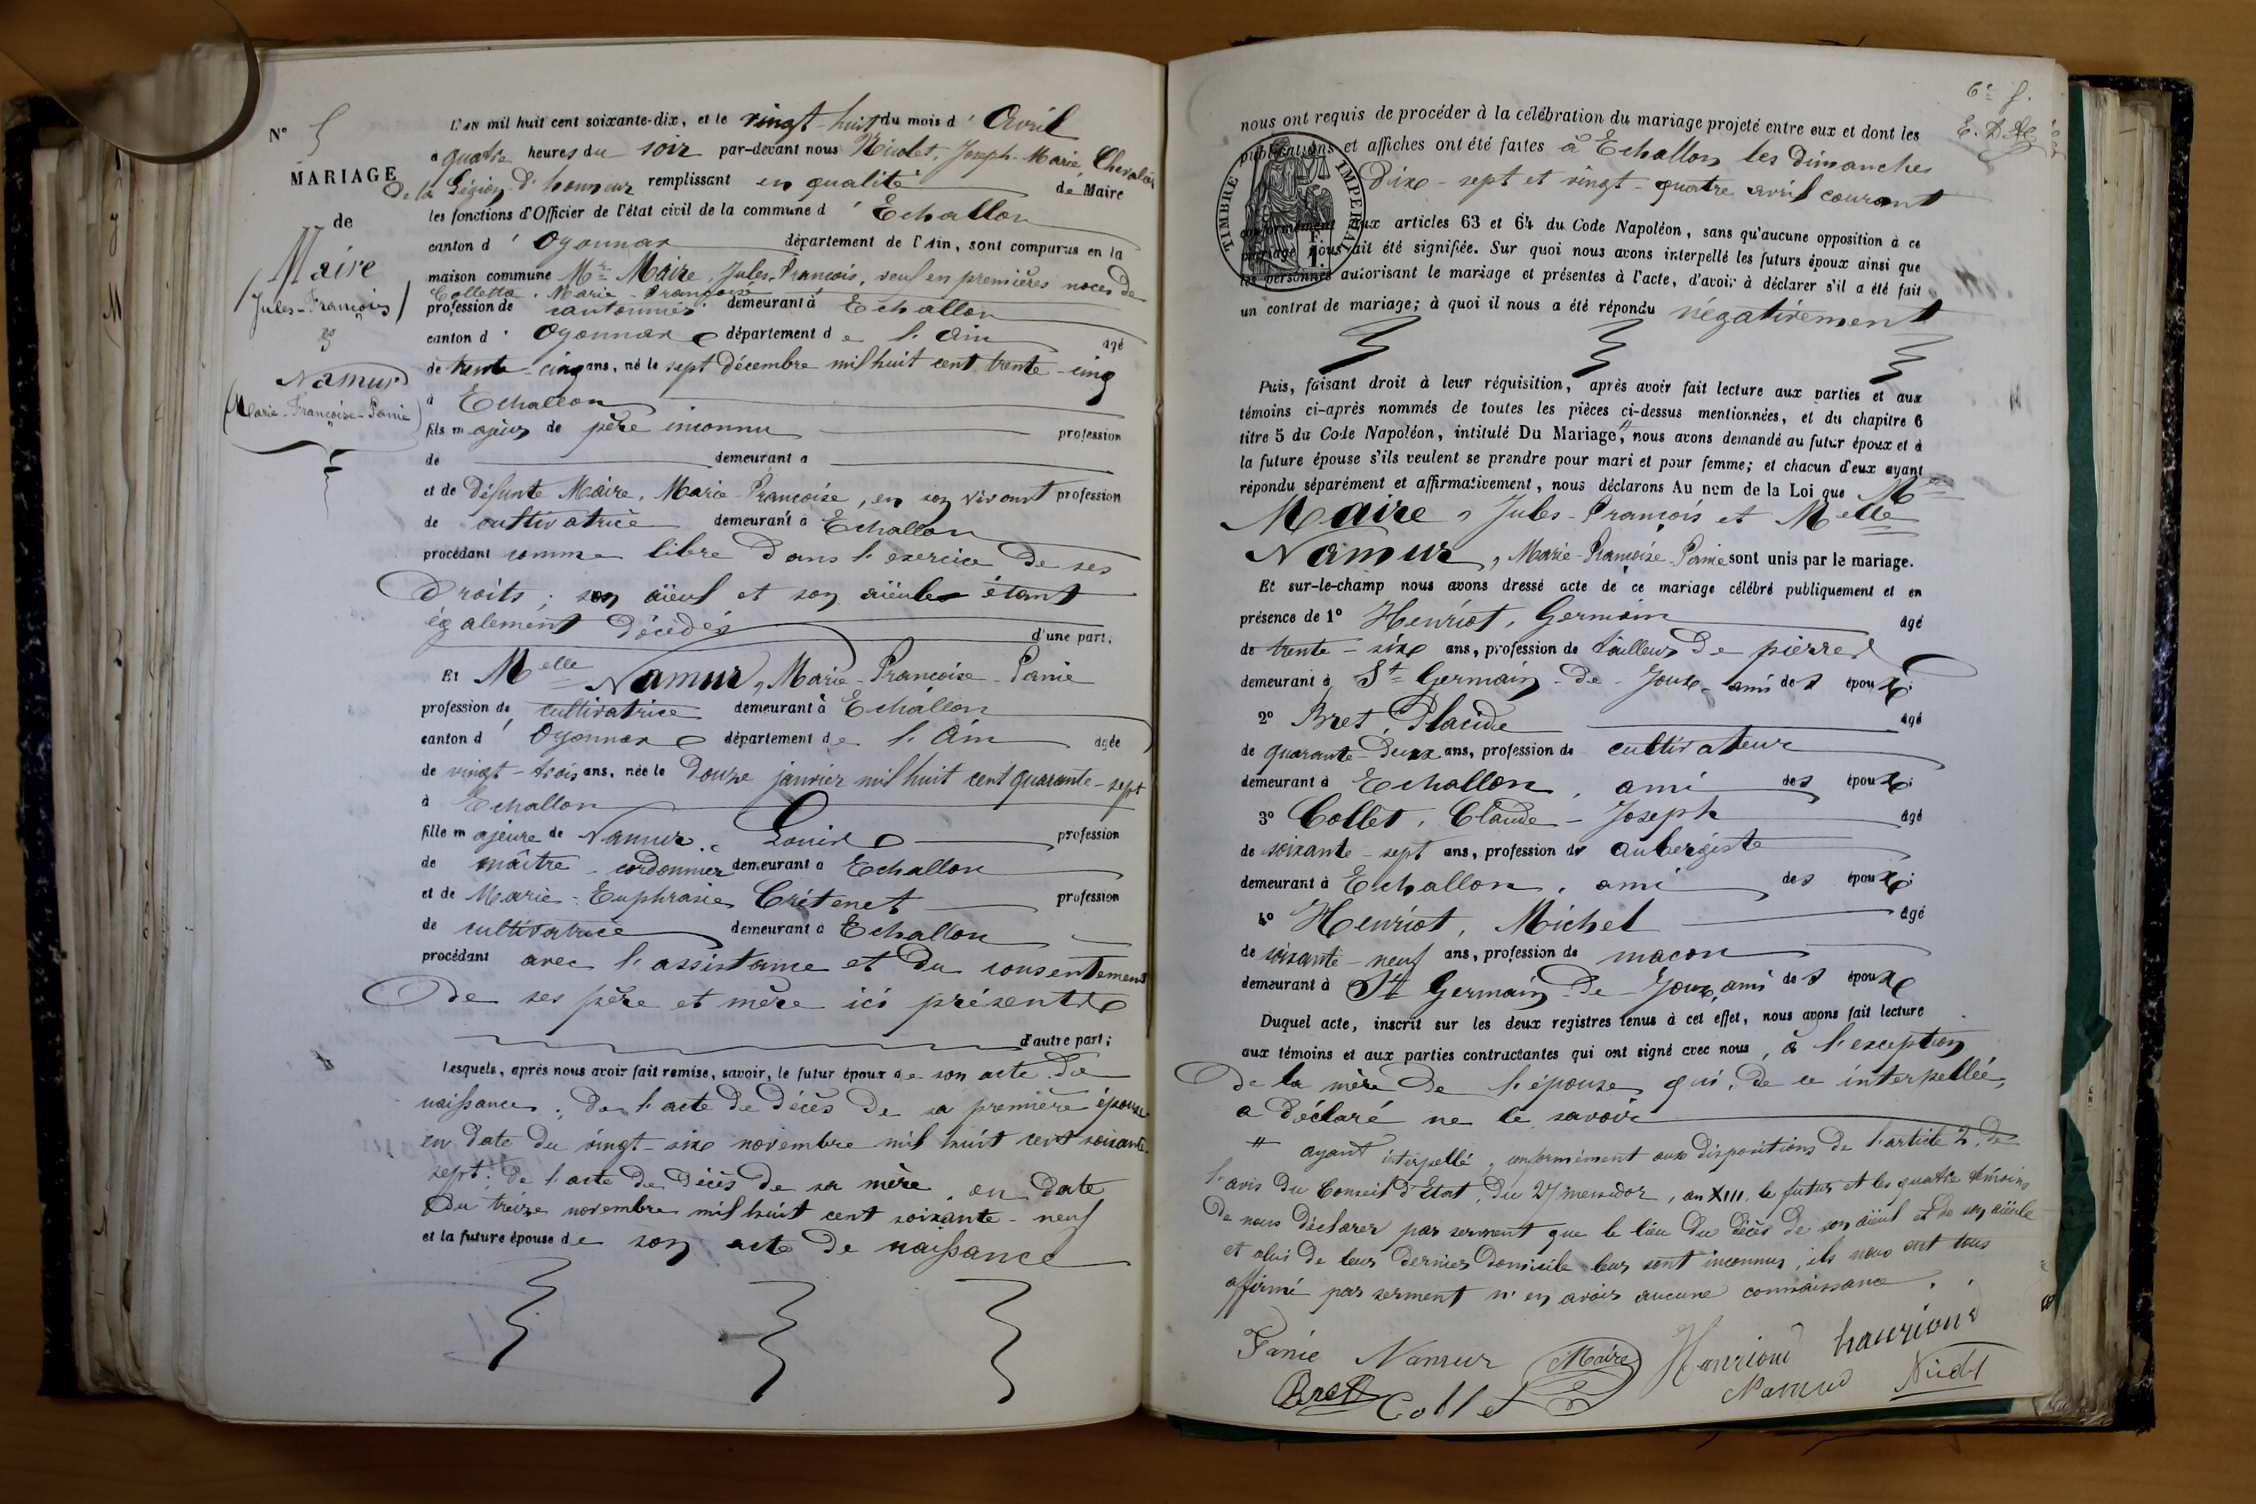 N° 5
MARIAGE
de
Maire
(Jules-François)
&
Namur
(Marie-Françoise-Fanie)
L'AN mil huit cent soixante-dix, et le vingt-huit du mois d' Avril
à quatre heures du soir par-devant nous Nicolet, Joseph-Marie, Chevalier
De la Légion d'honneur remplissant en qualité de Maire
les fonctions d'Officier de l'état civil de la commune d' Echallon
canton d' Oyonnax département de l'Ain, sont comparus en la
maison commune Mr Maire, Jules-François, veuf en premières noces de
Colletta, Marie-Françoise
profession de cantonnier demeurant à Echallon
canton d' Oyonnax département de l'Ain âgé
de trente-cinq ans, né le sept décembre mil huit cent trente-cinq
à Echallon
fils majeur de père inconnu profession
de demeurant à
et de défunte Maire, Marie-Françoise, en son vivant profession
de cultivatrice demeurant à Echallon
procédant comme libre dans l'exercice de ses
droits; son aïeul et son aïeule étant
également décédés
d'une part.
Et Melle Namur, Marie-Françoise-Fanie
profession de cultivatrice demeurant à Echallon
canton d' Oyonnax département de l'Ain âgée
de vingt-trois ans, née le douze janvier mil huit cent quarante-sept
à Echallon
fille majeure de Namur, Louis profession
de maître-cordonnier demeurant à Echallon
et de Marie-Euphrasie Crétenet profession
de cultivatrice demeurant à Echallon
procédant avec l'assistance et du consentement
de ses père et mère ici présents
d'autre part;
Lesquels, après nous avoir fait remise, savoir, le futur époux de son acte de
naissance; de l'acte de décès de sa première épouse
en date du vingt-six novembre mil huit cent soixante-
sept; de l'acte de décès de sa mère, en date
du treize novembre mil huit cent soixante-neuf
et la future épouse de son acte de naissance
nous ont requis de procéder à la célébration du mariage projeté entre eux et dont les
publications et affiches ont été faites à Echallon les dimanches
dix-sept et vingt-quatre avril courant
TIMBRE IMPÉRIAL
conformément aux articles 63 et 64 du Code Napoléon, sans qu'aucune opposition à ce
mariage nous ait été signifiée. Sur quoi nous avons interpellé les futurs époux ainsi que
les personnes autorisant le mariage et présentes à l'acte, d'avoir à déclarer s'il a été fait
un contrat de mariage; à quoi il nous a été répondu négativement
Puis, faisant droit à leur réquisition, après avoir fait lecture aux parties et aux
témoins ci-après nommés de toutes les pièces ci-dessus mentionnées, et du chapitre 6
titre 5 du Code Napoléon, intitulé Du Mariage, # nous avons demandé au futur époux et à
la future épouse s'ils veulent se prendre pour mari et pour femme; et chacun d'eux ayant
répondu séparément et affirmativement, nous déclarons Au nom de la Loi que Mr
Maire, Jules-François et Melle
Namur, Marie-Françoise-Fanie sont unis par le mariage.
Et sur-le-champ nous avons dressé acte de ce mariage célébré publiquement et en
présence de 1° Henriot, Germain âgé
de trente-six ans, profession de tailleur de pierres
demeurant à St Germain-de-Joux, ami des époux;
2° Bret, Placide âgé
de quarante-deux ans, profession de cultivateur
demeurant à Echallon, ami des époux;
3° Collet, Claude-Joseph âgé
de soixante-sept ans, profession de aubergiste
demeurant à Echallon, ami des époux;
4° Henriot, Michel âgé
de soixante-neuf ans, profession de maçon
demeurant à St Germain-de-Joux, ami des époux
Duquel acte, inscrit sur les deux registres tenus à cet effet, nous avons fait lecture
aux témoins et aux parties contractantes qui ont signé avec nous, à l'exception
de la mère de l'épouse qui, de ce interpellée,
a déclaré ne le savoir
# ayant interpellé, conformément aux dispositions de l'article 2 de
l'avis du Conseil d'Etat, du 27 messidor, an XIII, le futur et les quatre témoins
de nous déclarer par serment que le lieu du décès de son aïeul et de son aïeule
et celui de leur dernier domicile leur sont inconnus, ils nous ont tous
affirmé par serment n'en avoir aucune connaissance.
Fanie Namur Maire Henrioud hanrioud
Bret Collet Namur Nicolet